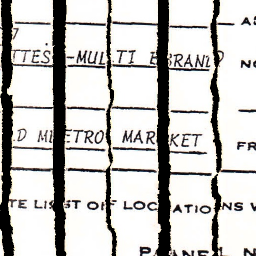 AS
TTES-MULTI BRAND
NO
D METRO MARKET
FR
TE LIST OF LOCATIONS W
PANEL N